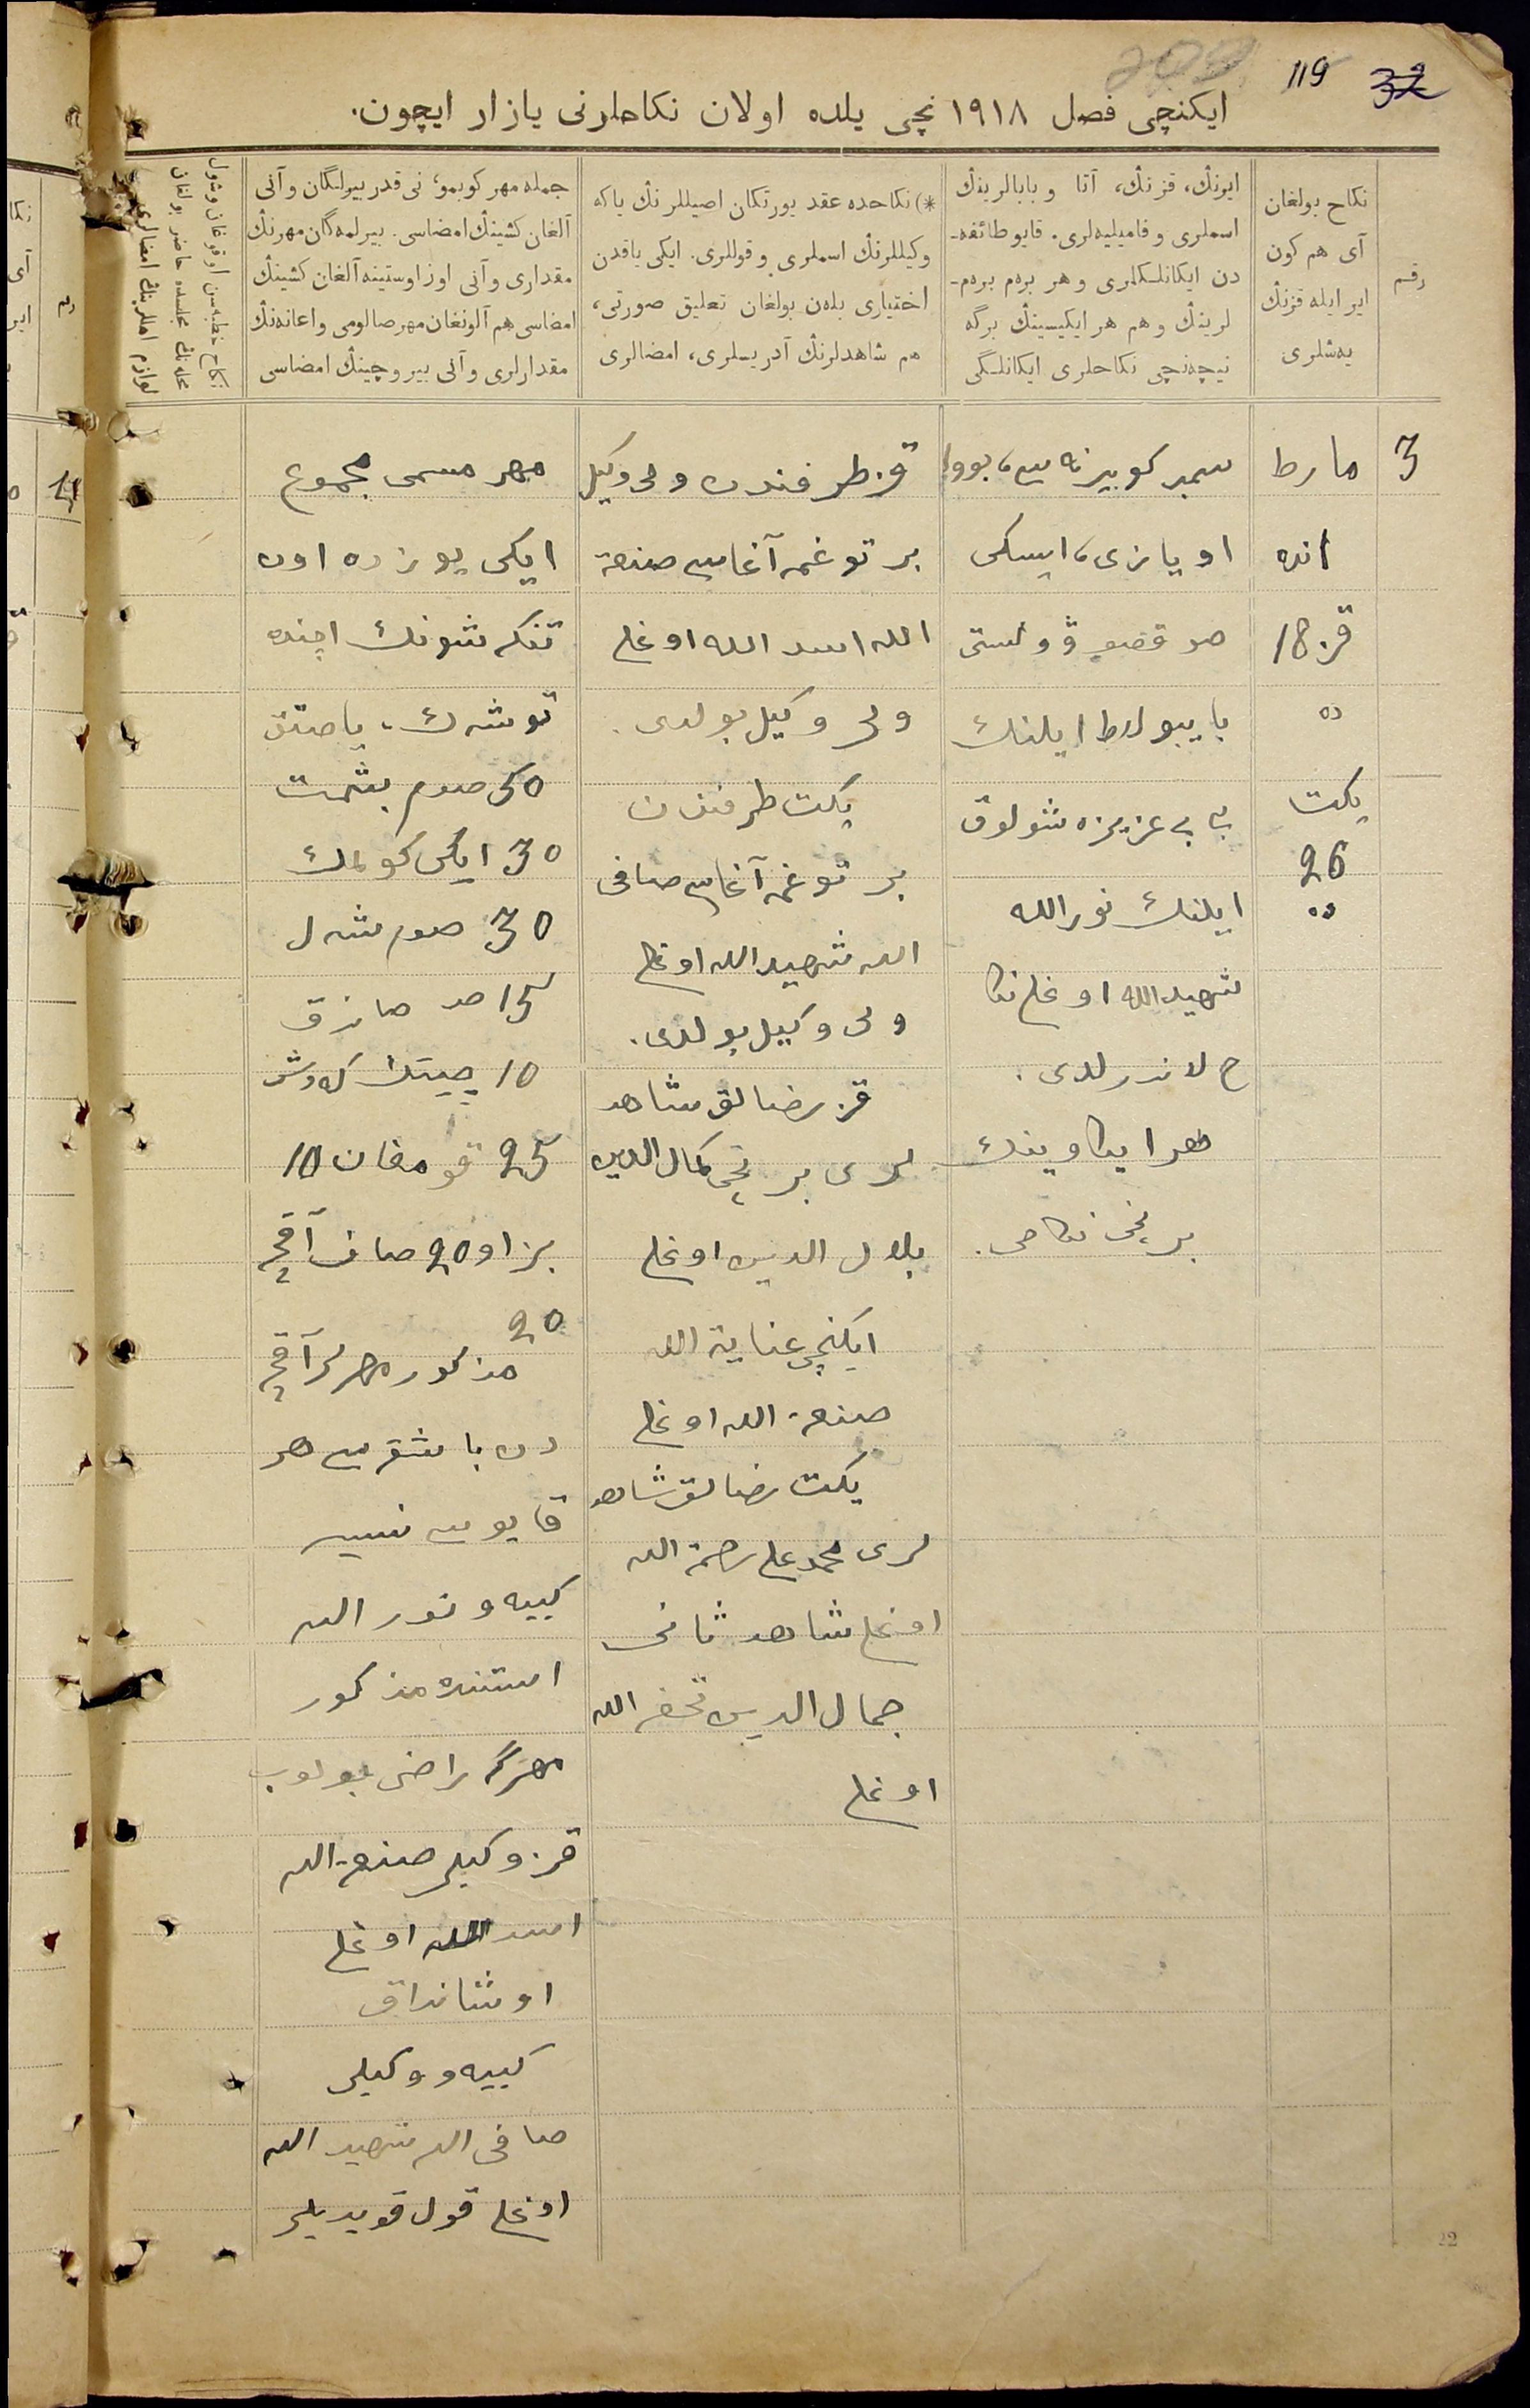 209 119 32
ایكنچی فصل ١٩١٨ نچی یلده اولان نكاحلرنی یازار ایچون.
رقم
نكاح بولغان
آی هم كون
ایر ایله قزنڭ
یه‌شلری
ایرنڭ، قزنڭ، آتا و بابالرینڭ
اسملری و فامیلیه‌لری. قایو طائفه‌-
دن ایكانلكلری و هر برم برم-
لرینڭ و هم هر ایكیسینڭ برگه
نیچه‌نچی نكاحلری ایكانلگی
*) نكاحده عقد یورتكان اصیللرنڭ یاكه
وكیللرنڭ اسملری و قوللری. ایكی یاقدن
اختیاری بله‌ن بولغان تعلیق صورتی،
هم شاهدلرنڭ آدریسلری، امضالری
جمله مهر كوبمو؛ نی قدر بیرلگان و آنی
آلغان كشینڭ امضاسی. بیرلمه‌گان مهرنڭ
مقداری و آنی اوز اوستینه آلغان كشینڭ
امضاسی هم آلونغان مهر صالومی و اعانه‌نڭ
مقدارلری و آنی بیروچینڭ امضاسی
نكاح خطبه‌سن اوقوغان و شول
مجلسده حاضر بولغان
3
مارط
انده
قز 18
ده
یكت
26
ده
سمبر كوبیرناسی، بووا
اویازی، ایسكی
وولستی
بایبولاط ایلنك
بی بی عزیزه شولوق
ایلنك نورالله
شهیدالله اوغلی نكا
ح لاندرلدی.
هر ایكاوینك
برنجی نكاحی.
قز طرفندن ولی وكیل
بر توغمه آغاسی صنعة
الله اسدالله اوغلی
ولی وكیل بولدی.
یكت طرفندن
بر توغمه آغاسی صافی
الله شهیدالله اوغلی
ولی وكیل بولدی.
قز رضالق شاهد
لری برنجی كمال الدین
بلال الدین اوغلی
ایكنچی عنایة الله
صنعة الله اوغلی
یكت رضالق شاهد
لری محمدعلی رحمة الله
اوغلی شاهد ثانی
جمال الدین تحفة الله
اوغلی
مهر مسمی مجموع
ایكی یوزده اون
تنكه شونك اچنده
توشه‌ك، یاصتق
50 صوم بشمت
30 ایكی كولمك
30 صوم شه‌ل
15 صـ صارق
10 چیتك كه‌وش
25 قومغان 10
بزاو 20 صاف آقچه
20
مذكور مهر آقچه
دن باشقه‌سی هر
قایوسی نسیه
كییه و نورالله
استنده مذكور
مهرگه راضی بولوب
قز وكیلی صنعةالله
اسدالله اوغلی
اوشانداق
كییه و وكیلی
صافی الله شهیدالله
اوغلی قول قویدیلر
22